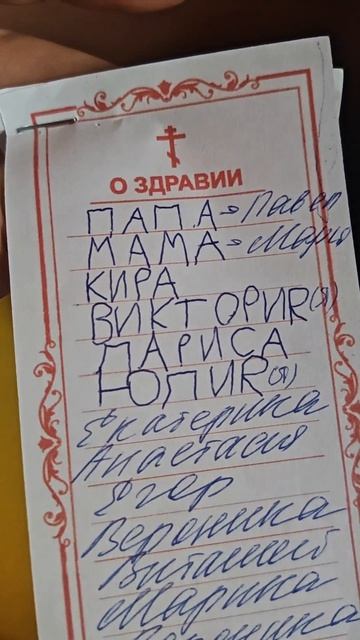 О ЗДРАВИИ
ПАПА - Павел
МАМА - Мария
КИРА
ВИКТОРИR (я)
ЛАРИСА
ЮЛИR (я)
Екатерина
Анастасия
Егор
Вероника
Виталий
Марина